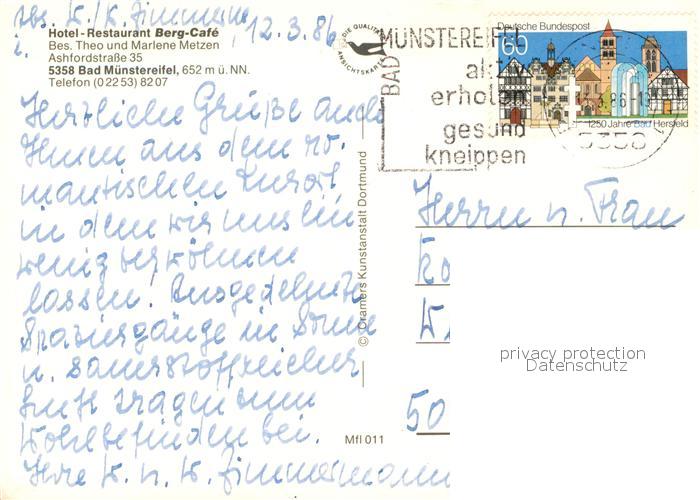 Abs. W./K. Zimmermann, 12.3.86
Hotel-Restaurant Berg-Café
Bes. Theo und Marlene Metzen
Ashfordstraße 35
5358 Bad Münstereifel, 652 m ü. NN.
Telefon (0 22 53) 82 07
Herzliche Grüße auch
Ihnen aus dem ro-
mantischen Kurort
in dem wir uns ein
wenig verwöhnen
lassen. Ausgedehnte
Spaziergänge in Sonne
u. sauerstoffreicher
Luft tragen zum
Wohlbefinden bei.
Ihre W. u. K. Zimmermann
DIE QUALITÄTS
ANSICHTSKARTE
© Cramers Kunstanstalt Dortmund
Mfl 011
BAD MÜNSTEREIFEL
aktiv
erholen
gesund
kneippen
Deutsche Bundespost
60
1250 Jahre Bad Hersfeld
5358
Herrn u. Frau
50
privacy protection
Datenschutz